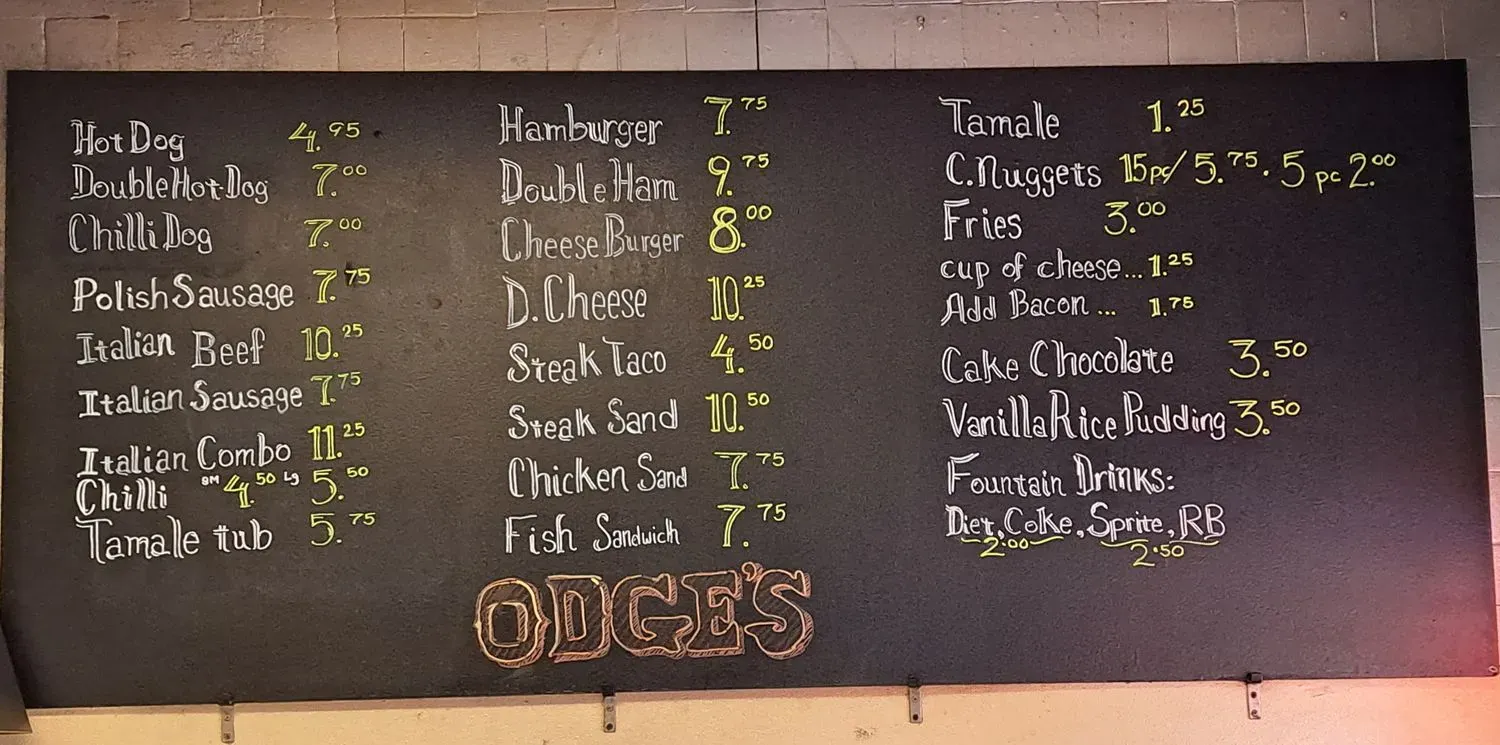 Hot Dog 4.95
Double Hot Dog 7.00
Chilli Dog 7.00
Polish Sausage 7.75
Italian Beef 10.25
Italian Sausage 7.75
Italian Combo 11.25
Chilli SM 4.50 Lg 5.50
Tamale tub 5.75
Hamburger 7.75
Double Ham 9.75
Cheese Burger 8.00
D. Cheese 10.25
Steak Taco 4.50
Steak Sand 10.50
Chicken Sand 7.75
Fish Sandwich 7.75
Tamale 1.25
C. Nuggets 15pc/ 5.75. 5 pc 2.00
Fries 3.00
cup of cheese... 1.25
Add Bacon... 1.75
Cake Chocolate 3.50
Vanilla Rice Pudding 3.50
Fountain Drinks:
Diet, Coke, Sprite, RB
2.00 2.50
ODGE'S